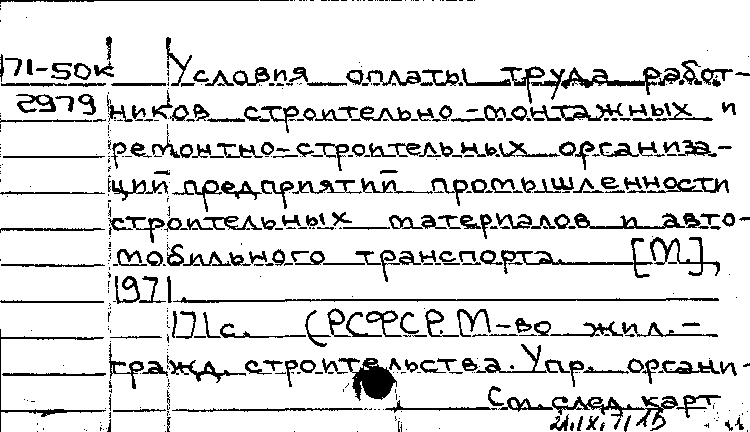 71-50к Условия оплаты труда работ-
2979 ников строительно-монтажных и
ремонтно-строительных организа-
ций предприятий промышленности
строительных материалов и авто-
мобильного транспорта. [М.],
1971.
171 с. (РСФСР. М-во жил.-
гражд. строительства. Упр. органи-
См. след. карт